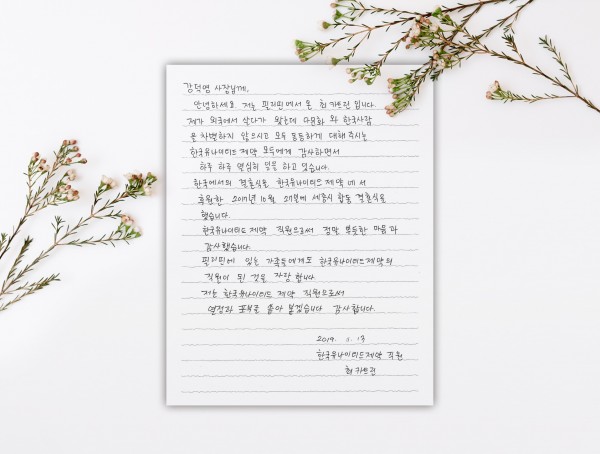 강덕영 사장님께,
안녕하세요. 저는 필리핀에서 온 최 카트린 입니다.
제가 외국에서 살다가 왔는데 다문화 와 한국사람
을 차별하지 않으시고 모두 동등하게 대해 주시는
한국유나이티드 제약 모두에게 감사하면서
하루 하루 열심히 일을 하고 있습니다.
한국에서의 결혼식을 한국유나이티드 제약 에서
후원한 2017년 10월 28일에 세종시 합동 결혼식을
했습니다.
한국유나이티드 제약 직원으로써 정말 뿌듯한 마음과
감사했습니다.
필리핀에 있는 가족들에게도 한국유나이티드제약의
직원이 된 것을 자랑 합니다.
저는 한국유나이티드 제약 직원으로써
열정과 포부를 쏟아 붙겠습니다 감사합니다.
2019. 11. 13
한국유나이티드제약 직원
최 카트린